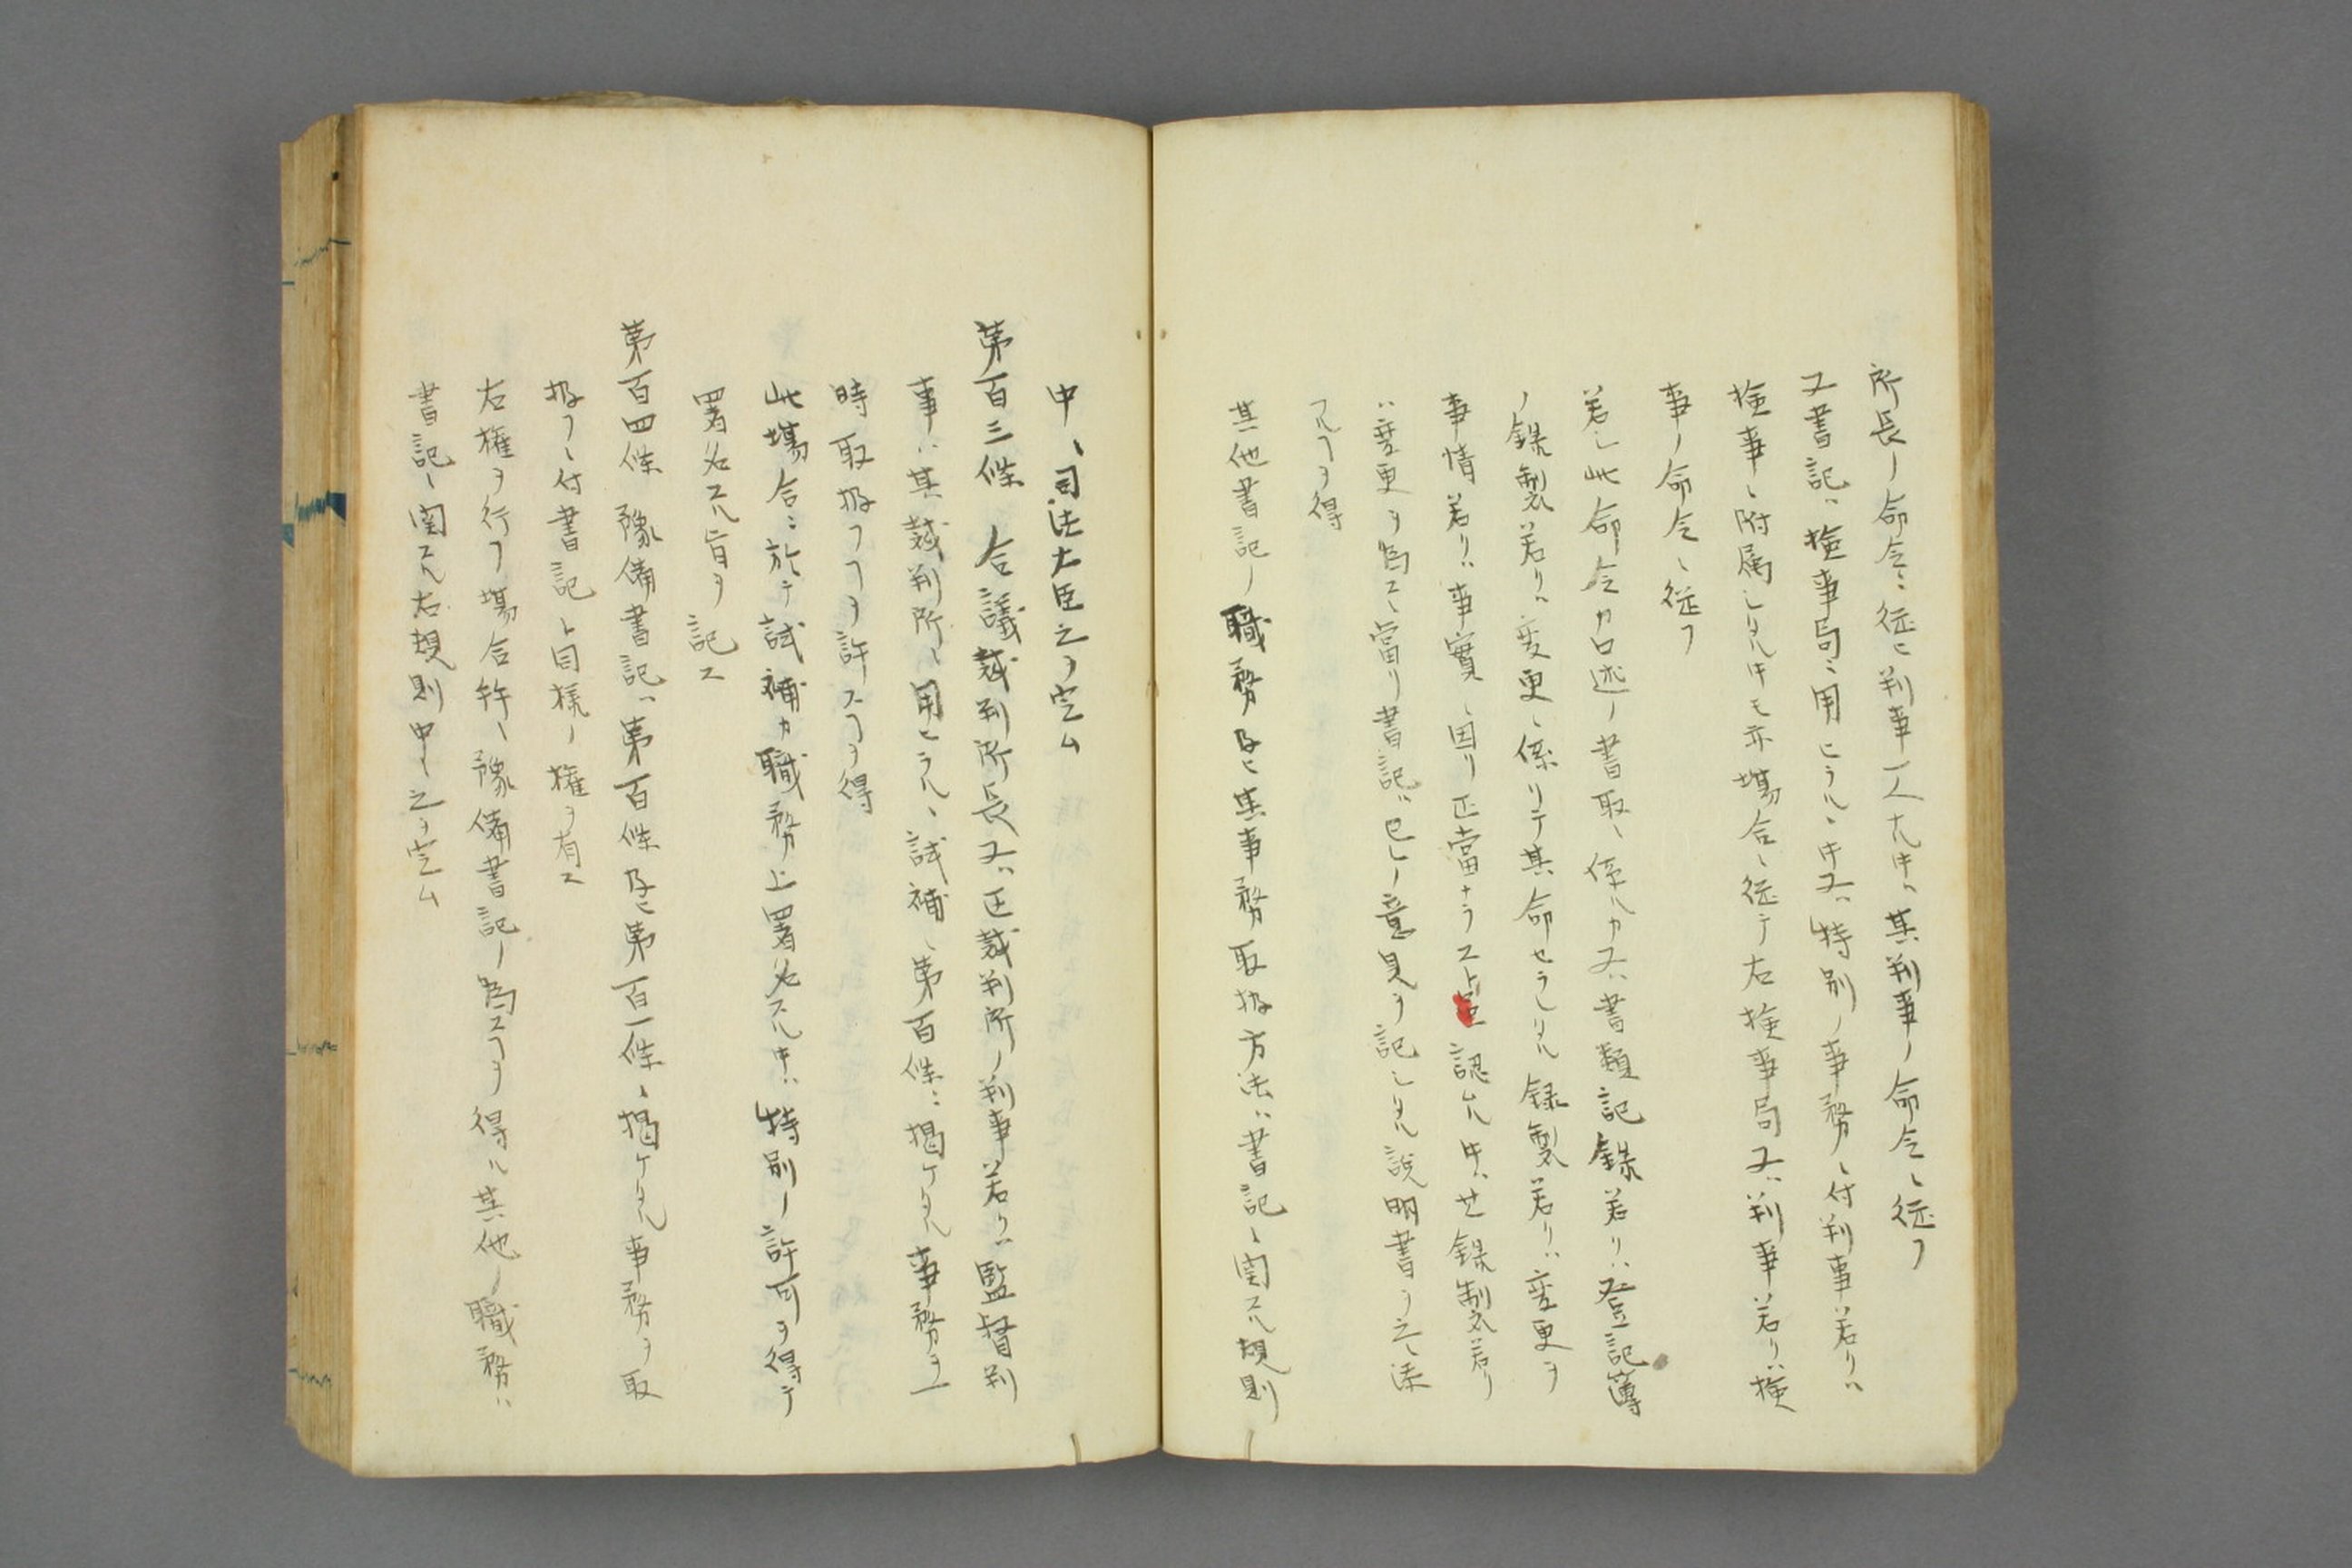 所長ノ命令ニ従ヒ判事一人ナルキハ其判事ノ命令ニ従フ
又書記ハ検事局ニ用ヒラルヽキ又ハ特別ノ事務ニ付判事若クハ
検事ニ附属シタルキモ亦場合ニ従テ右検事局又ハ判事若クハ検
事ノ命令ニ従フ
若シ此命令カ口述ノ書取ニ係ルカ又ハ書類記録若クハ登記簿
ノ録製若クハ変更ニ係リテ其命セラレタル録製若クハ変更ヲ
事情若クハ事實ニ因リ正當ナラスト認ムルキハ其録製若ク
ハ変更ヲ為スニ當リ書記ハ己レノ意見ヲ記シタル説明書ヲ之ニ添
フルヿヲ得
其他書記ノ職務及ヒ其事務取扱方法ハ書記ニ関スル規則
中ニ司法大臣之ヲ定ム
第百三條 合議裁判所長又ハ区裁判所ノ判事若クハ監督判
事ハ其裁判所ニ用ヒラルヽ試補ニ第百條ニ掲ケタル事務ヲ一
時取扱フヿヲ許スヿヲ得
此場合ニ於テ試補カ職務上署名スルキハ特別ノ許可ヲ得テ
署名スル旨ヲ記ス
第百四條 豫備書記ハ第百條及ヒ第百一條ニ掲ケタル事務ヲ取
扱フニ付書記ト同様ノ権ヲ有ス
右権ヲ行フ場合并ニ豫備書記ノ為スヿヲ得ル其他ノ職務ハ
書記ニ関スル右規則中ニ之ヲ定ム